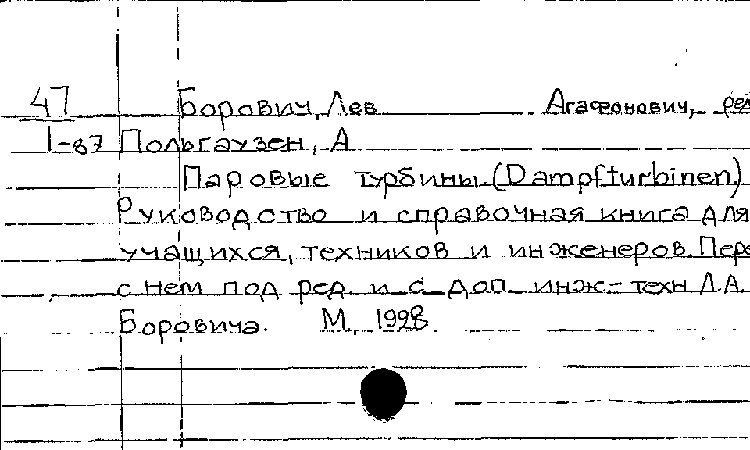 47 Борович, Лев Агафонович, ред
I-87 Польгаузен, А
Паровые турбины (Dampfturbinen)
Руководство и справочная книга для
учащихся, техников и инженеров. Пере
с нем под ред. и с доп инж-техн Л.А.
Боровича. М, 1928.